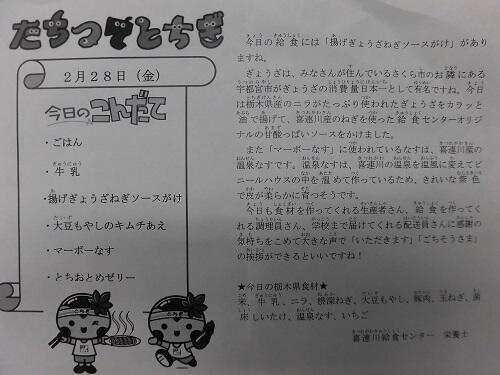 たちつてとちぎ
2月28日(金)
今日のこんだて
・ごはん
・牛乳
・揚げぎょうざねぎソースがけ
・大豆もやしのキムチあえ
・マーボーなす
・とちおとめゼリー
今日の給食には「揚げぎょうざねぎソースがけ」があり
ますね。
ぎょうざは、みなさんが住んでいるさくら市のお隣にある
宇都宮市がぎょうざの消費量日本一として有名ですね。今日
は栃木県産のニラがたっぷり使われたぎょうざをカラッと
油で揚げて、喜連川産のねぎを使った給食センターオリジ
ナルの甘酸っぱいソースをかけました。
また「マーボーなす」に使われているなすは、喜連川産の
温泉なすです。温泉なすは、喜連川の温泉を温風に変えてビ
ニールハウスの中を温めて作っているため、きれいな紫色
で皮が柔らかに育つそうです。
今日も食材を作ってくれる生産者さん、給食を作ってく
れる調理員さん、学校まで届けてくれる配送員さんに感謝の
気持ちをこめて大きな声で「いただきます」「ごちそうさま」
の挨拶ができるといいですね!
★今日の栃木県食材★
米、牛乳、ニラ、根深ねぎ、大豆もやし、豚肉、玉ねぎ、菌
床しいたけ、温泉なす、いちご
喜連川給食センター 栄養士